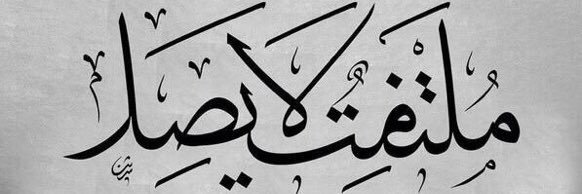 مُلتفتٌ لا يصل